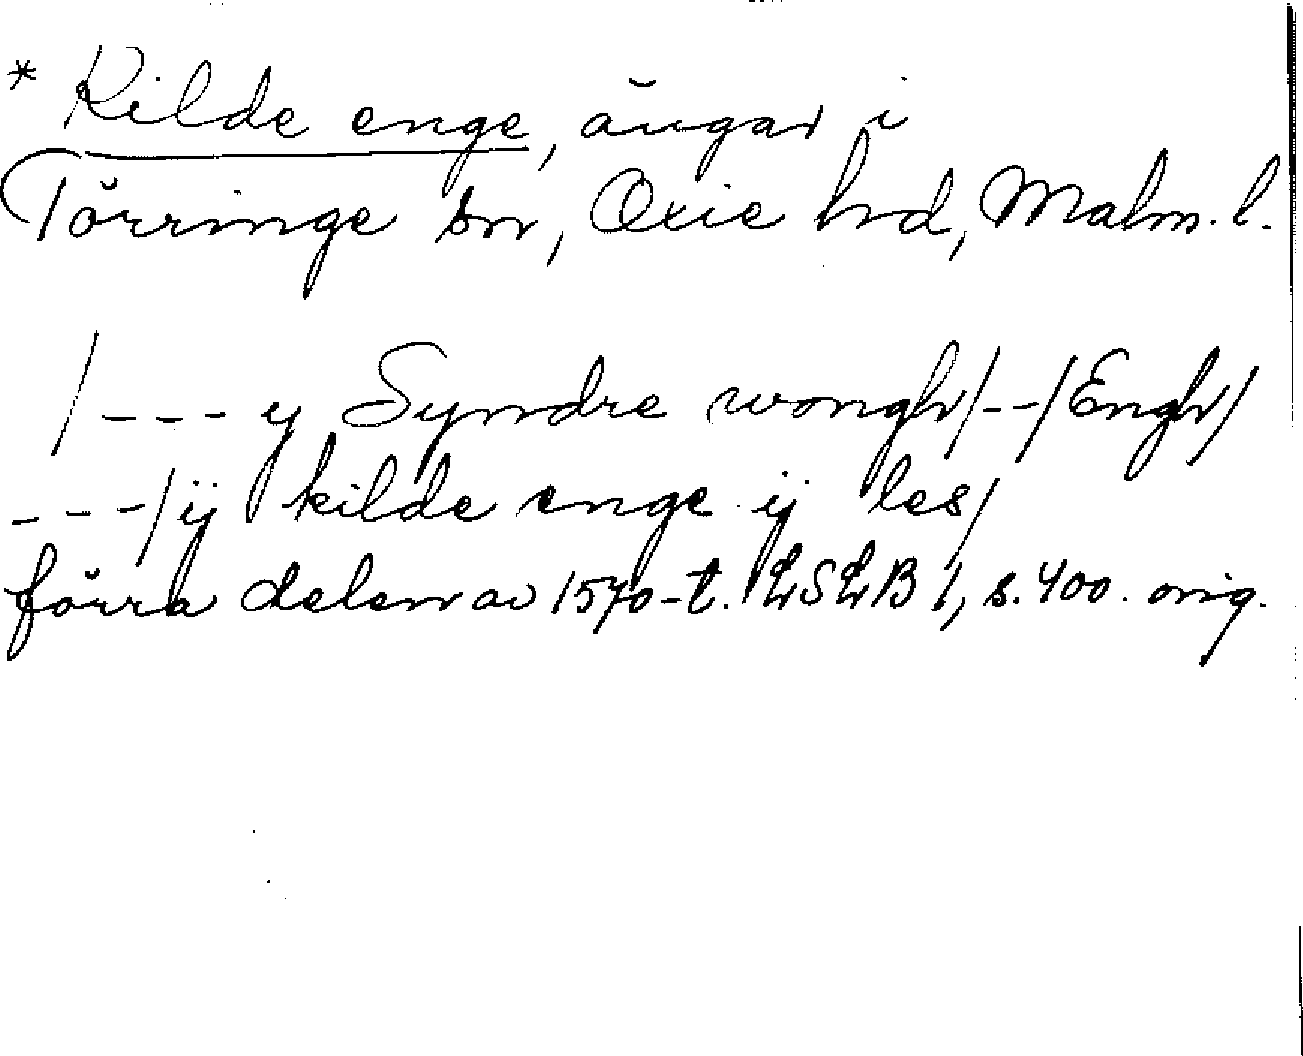 * Kilde enge, ängar i
Törringe sn, Oxie hd, Malm. l.
/--- y Syndre wongh/--/Engh/
---/ij kilde enge ij les/
förra delen av 1570-t. LSLB 1, s. 400. orig.